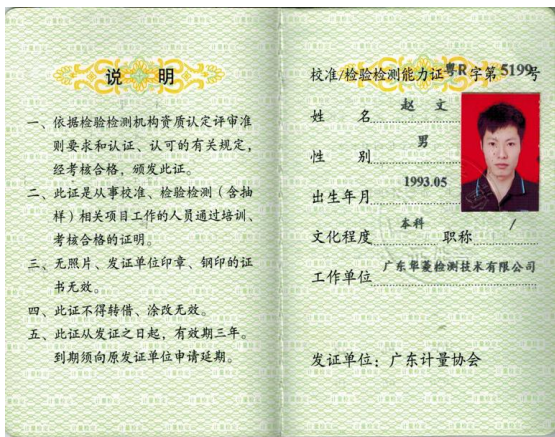 说 明
一、依据检验检测机构资质认定评审准
则要求和认证、认可的有关规定，
经考核合格，颁发此证。
二、此证是从事校准、检验检测（含抽
样）相关项目工作的人员通过培训、
考核合格的证明。
三、无照片、发证单位印章、钢印的证
书无效。
四、此证不得转借、涂改无效。
五、此证从发证之日起，有效期三年。
到期须向原发证单位申请延期。
校准/检验检测能力证粤R字第5199号
姓 名 赵 文
性 别 男
出生年月 1993.05
文化程度 本科 职称 /
工作单位 广东华菱检测技术有限公司
发证单位：广东计量协会